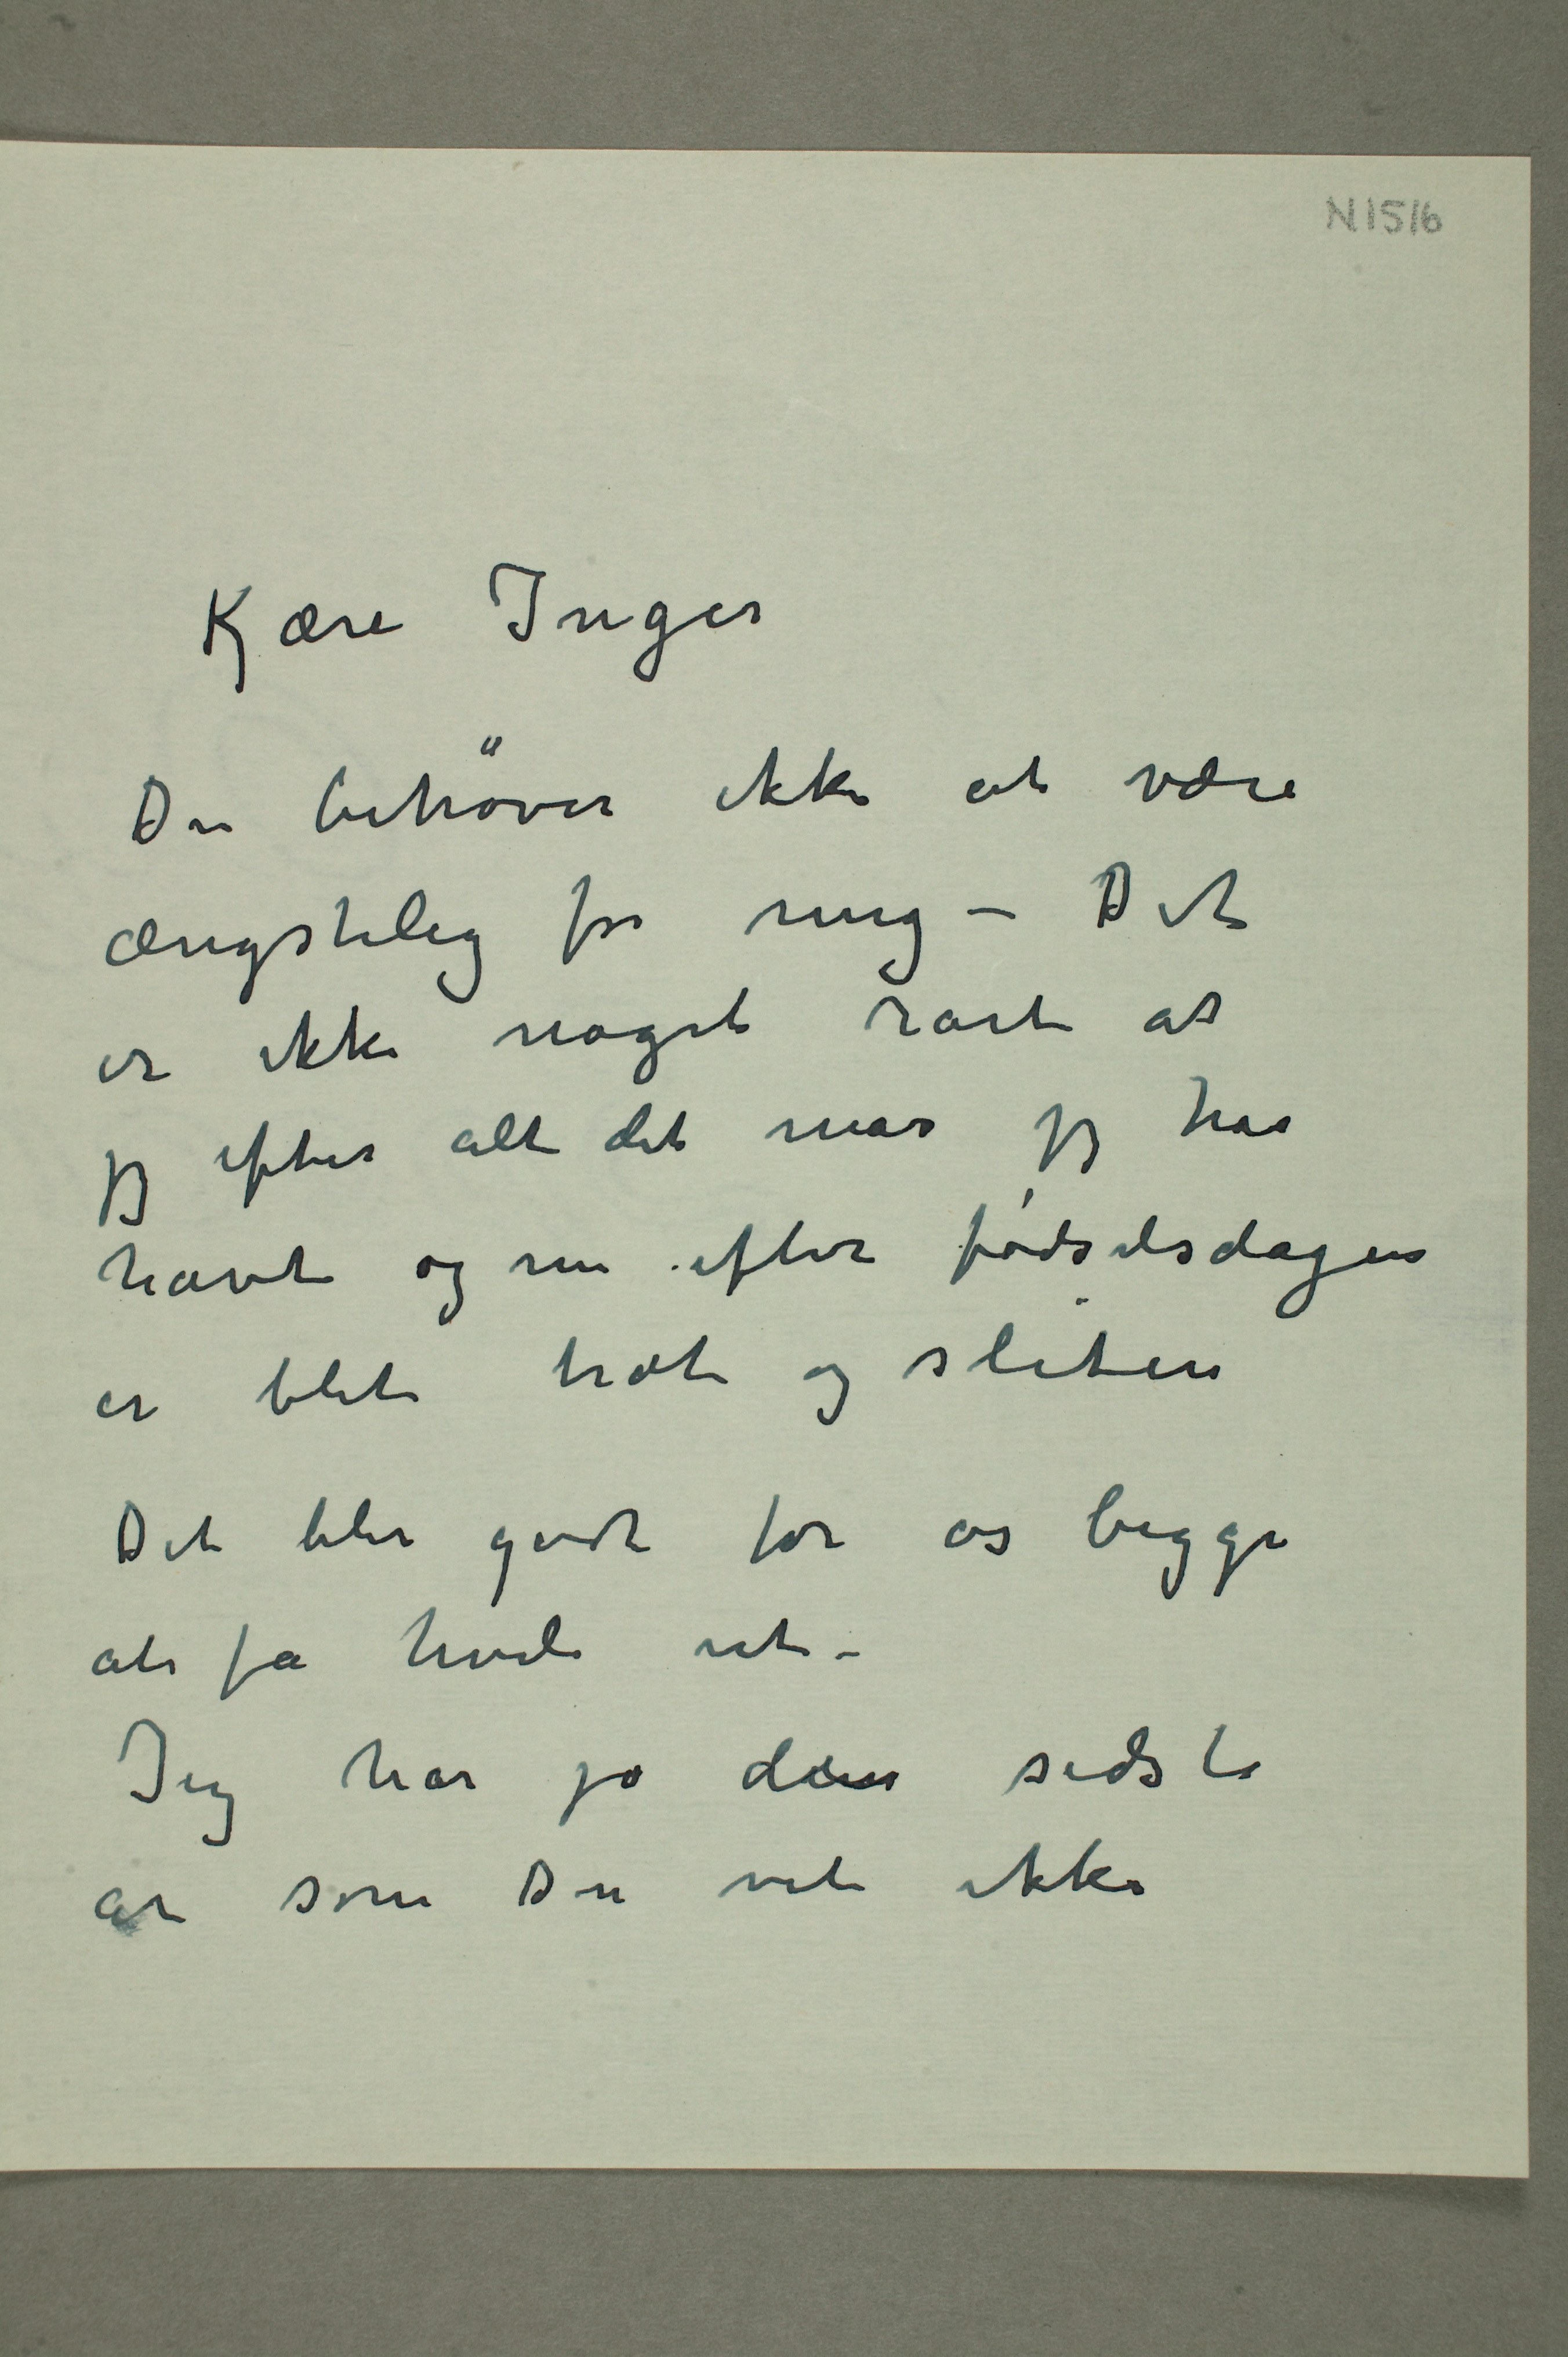 N 1516
Kjære Inger
Du behöver ikke at være
ængstelig for mig – Det
er ikke noget rart at
jeg efter alt det mas jeg har
havt og nu efter fødselsdagen
er blit træt og sliten
Det blir godt for os begge
at få hvile ut –
Jeg har jo den sidste
år som Du vet ikke